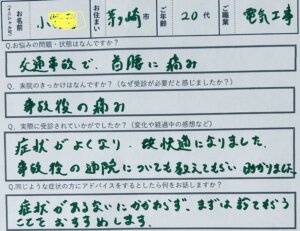 お名前 小 お住まい 茅ヶ崎市 ご年齢 20代 ご職業 電気工事
Q.お悩みの問題・状態はなんですか？
交通事故で、首腰に痛み
Q. 来院のきっかけはなんですか？（なぜ受診が必要だと感じましたか？）
事故後の痛み
Q. 実際に受診されていかがでしたか？（変化や経過中の感想など）
症状がよくなり、快適になりました。
事故後の通院についても教えてもらい 助かりました。
Q.同じような症状の方にアドバイスをするとしたら何をお話しますか？
症状があるないにかかわらず、まずは診てもらう
ことをおすすめします。